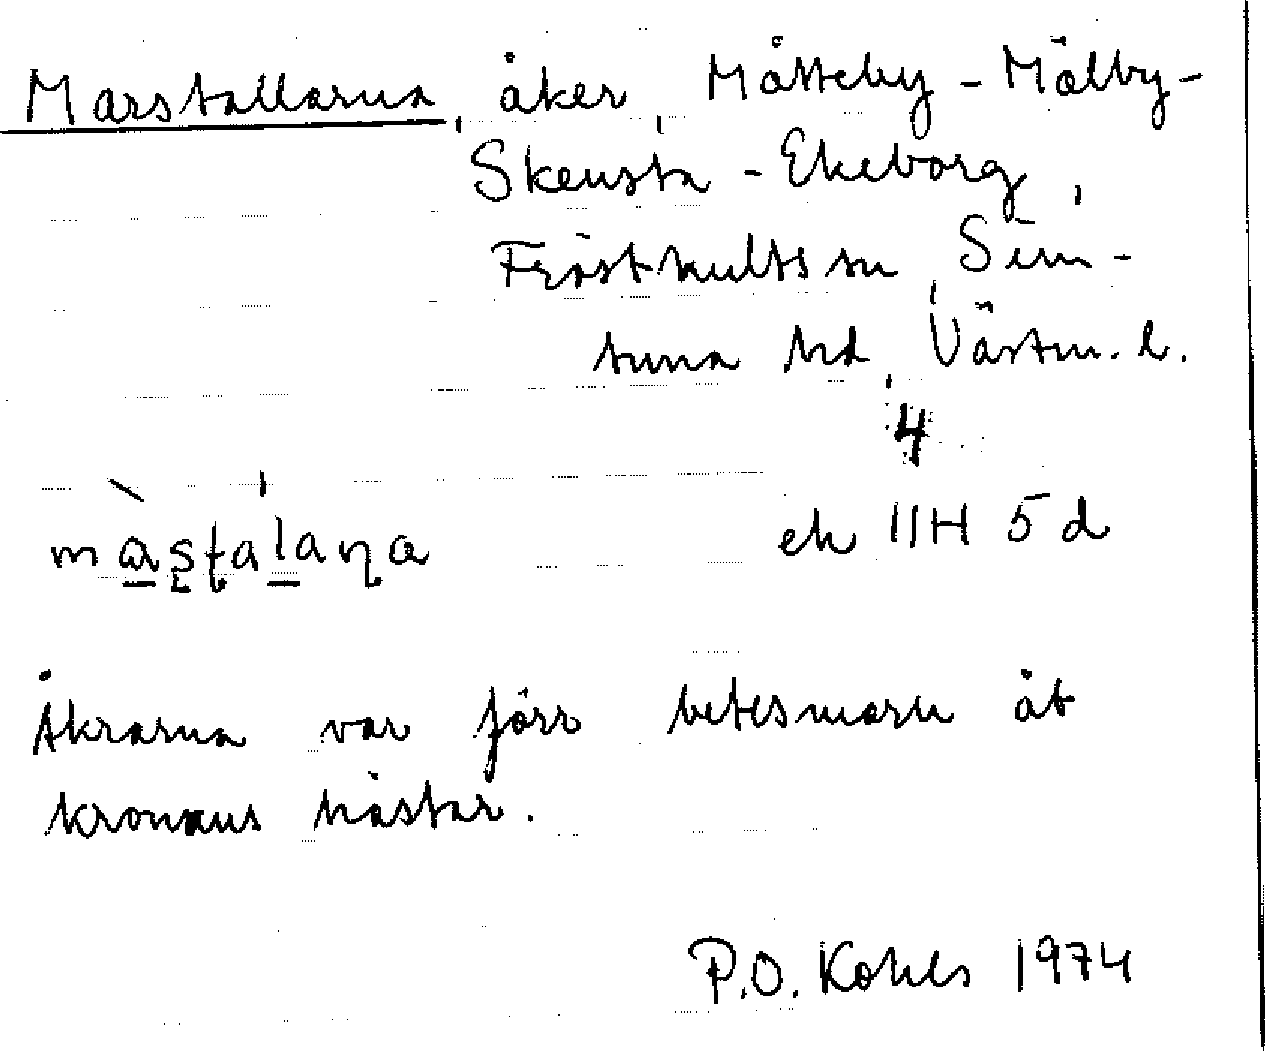 Marstallarna, åker, Måtteby - Mälby -
Skensta - Ekeborg,
Frösthults sn, Sim-
tuna hd, Västm. l.
4
màsta'lana
ek 11H 5d
Åkrarna var förr betesmark åt
kronans hästar.
P.O. Kohls 1974